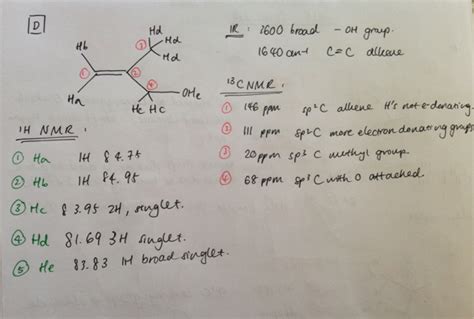 D
IR : 2600 broad - OH group.
1640 cm-1 C=C alkene
Hd
Hd
Hd
Hb
Ha
OHe
Hc Hc
1
2
3
4
13C NMR :
1 146 ppm sp2 C alkene H's not e- donating
2 111 ppm sp2 C more electron donating groups
3 20 ppm sp3 C methyl group
4 68 ppm sp3 C with O attached.
1H NMR :
1 Ha 1H δ 4.75
2 Hb 1H δ4.95
3 Hc δ 3.95 2H, singlet.
4 Hd δ1.69 3H singlet.
5 He δ3.83 1H broad singlet.